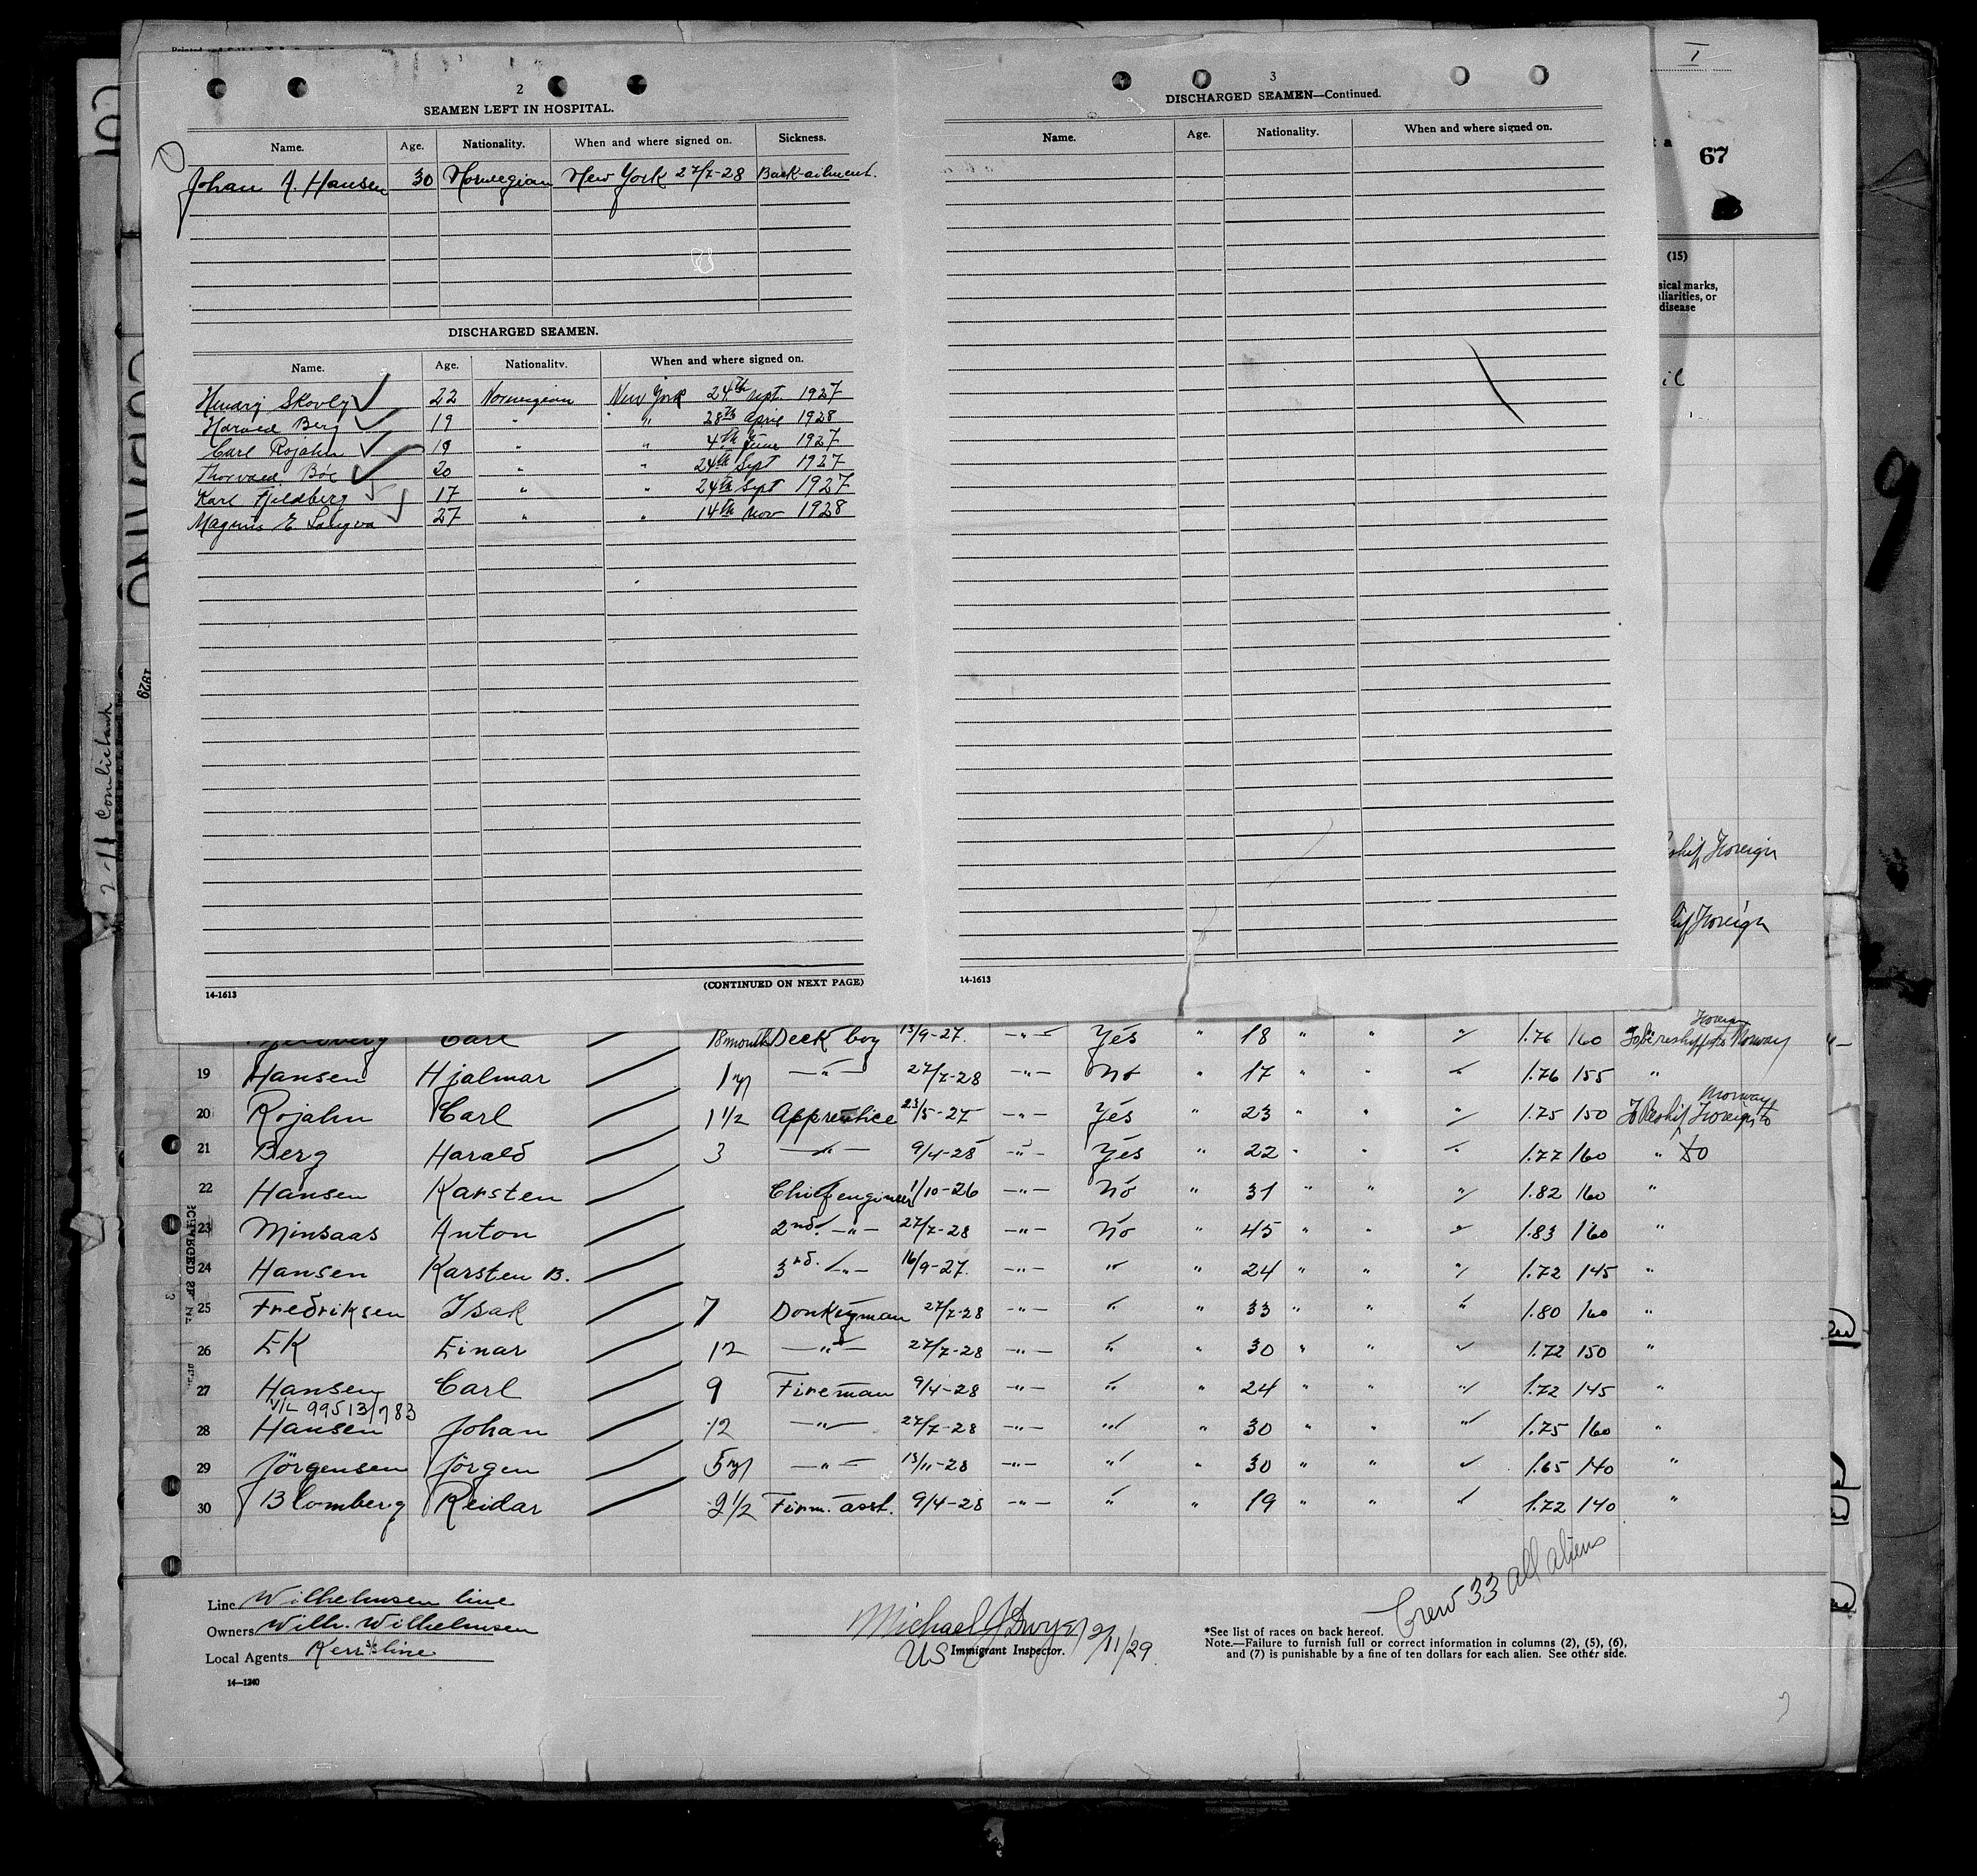 2
SEAMEN LEFT IN HOSPITAL.
Name. Age. Nationality. When and where signed on. Sickness.
Johan A. Hansen 30 Norwegian New York 27/7-28 Back-ailment.
DISCHARGED SEAMEN.
Name. Age. Nationality. When and where signed on.
Skovly 22 Norwegian New York 24th sept. 1927
Harald Berg 19 " " 28th April 1928
Carl Rojahn 19 " " 4th June 1927
Thorvald Böe 20 " " 24th Sept 1927
Karl Fjeldberg 17 " " 24th Sept 1927
Magnus E 27 " " 14th Nov 1928
14-1613
(CONTINUED ON NEXT PAGE)
3
DISCHARGED SEAMEN—Continued.
Name. Age. Nationality. When and where signed on.
14-1613
67
(15)
sical marks,
liarities, or
disease
ship Foreign
Foreign
1929
2-11
9
Carl 18 month Deck boy 13/9-27. -"- Yes " 18 " " " 1.76 160 To be reshipped to Norway
Foreign
19 Hansen Hjalmar 1 yr -"- 27/7-28 -"- No " 17 " " " 1.76 155 "
20 Rojahn Carl 1 1/2 Apprentice 23/5-27 -"- Yes " 23 " " " 1.75 150 To Reship Foreign to
Norway
21 Berg Harald 3 -"- 9/4-28 -"- Yes " 22 " " " 1.77 160 " to
22 Hansen Karsten Chief engineer 1/10-26 -"- No " 31 " " " 1.82 160 "
23 Minsaas Anton 2nd. -"- 27/7-28 -"- No " 45 " " " 1.83 160 "
24 Hansen Karsten B. 3rd. -"- 16/9-27. -"- " " 24 " " " 1.72 145 "
25 Fredriksen Isak 7 Donkeyman 27/7-28 -"- " " 33 " " " 1.80 160 "
26 Ek Einar 12 -"- 27/7-28 -"- " " 30 " " " 1.72 150 "
27 Hansen Carl 9 Fireman 9/4-28 -"- " " 24 " " " 1.72 145 "
99513/783
28 Hansen Johan 12 -"- 27/7-28 -"- " " 30 " " " 1.75 160 "
29 Jörgensen Jörgen 5 yr -"- 13/11-28 -"- " " 30 " " " 1.65 140 "
30 Blomberg Reidar 2 1/2 Firm. asst. 9/4-28 -"- " " 19 " " " 1.72 140 "
Crew 33 all aliens
Line Wilhelmsen line
Owners Wilh. Wilhelmsen
Local Agents Kerr line
14—1240
Michael J Dwyer 2/11/29.
US Immigrant Inspector.
*See list of races on back hereof.
Note.—Failure to furnish full or correct information in columns (2), (5), (6),
and (7) is punishable by a fine of ten dollars for each alien. See other side.